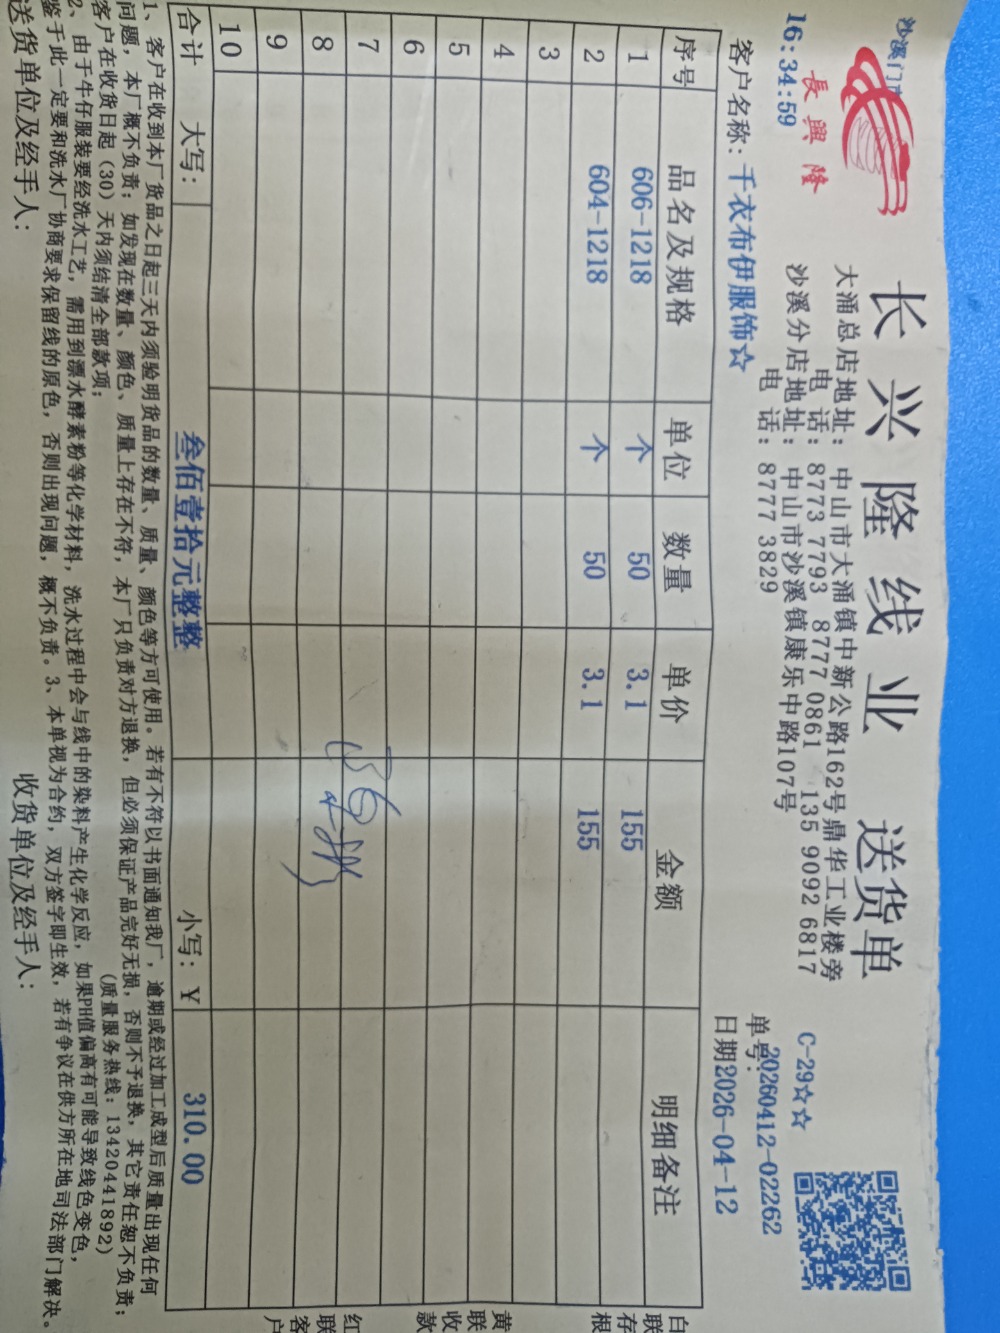 沙溪门市
16:34:59
長興隆
长兴隆线业 送货单
大涌总店地址: 中山市大涌镇中新公路162号鼎华工业楼旁
电 话: 8773 7793 8777 0861 135 9092 6817
沙溪分店地址: 中山市沙溪镇康乐中路107号
电 话: 8777 3829
C-29☆☆
单号: 20260412-02262
客户名称: 千衣布伊服饰☆ 日期2026-04-12
序号 品名及规格 单位 数量 单价 金额 明细备注
1 606-1218 个 50 3.1 155
2 604-1218 个 50 3.1 155
3
4
5
6
7
8
9
10
合计 大写: 叁佰壹拾元整整 小写: ¥ 310.00
白联存根
黄联收款
红联客户
1、客户在收到本厂货品之日起三天内须验明货品的数量、质量、颜色等方可使用。若有不符以书面通知我厂,逾期或经过加工成型后质量出现任何
问题,本厂概不负责;如发现在数量、颜色、质量上存在不符,本厂只负责对方退换,但必须保证产品完好无损,否则不予退换,其它责任恕不负责;
客户在收货日起(30)天内须结清全部款项; (质量服务热线:13420441892)
2、由于牛仔服装要经洗水工艺,需用到漂水酵素粉等化学材料,洗水过程中会与线中的染料产生化学反应,如果PH值偏高有可能导致线色变色,
鉴于此一定要和洗水厂协商要求保留线的原色,否则出现问题,概不负责。3、本单视为合约,双方签字即生效,若有争议在供方所在地司法部门解决。
送货单位及经手人: 收货单位及经手人: